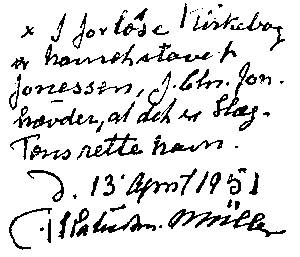 x I Jorløse Kirkebog
er navnet stavet
Jonessen, J. Chr. Jon-
hævder, at det er Slæg-
tens rette navn.
d. 13 April 1951
Müller